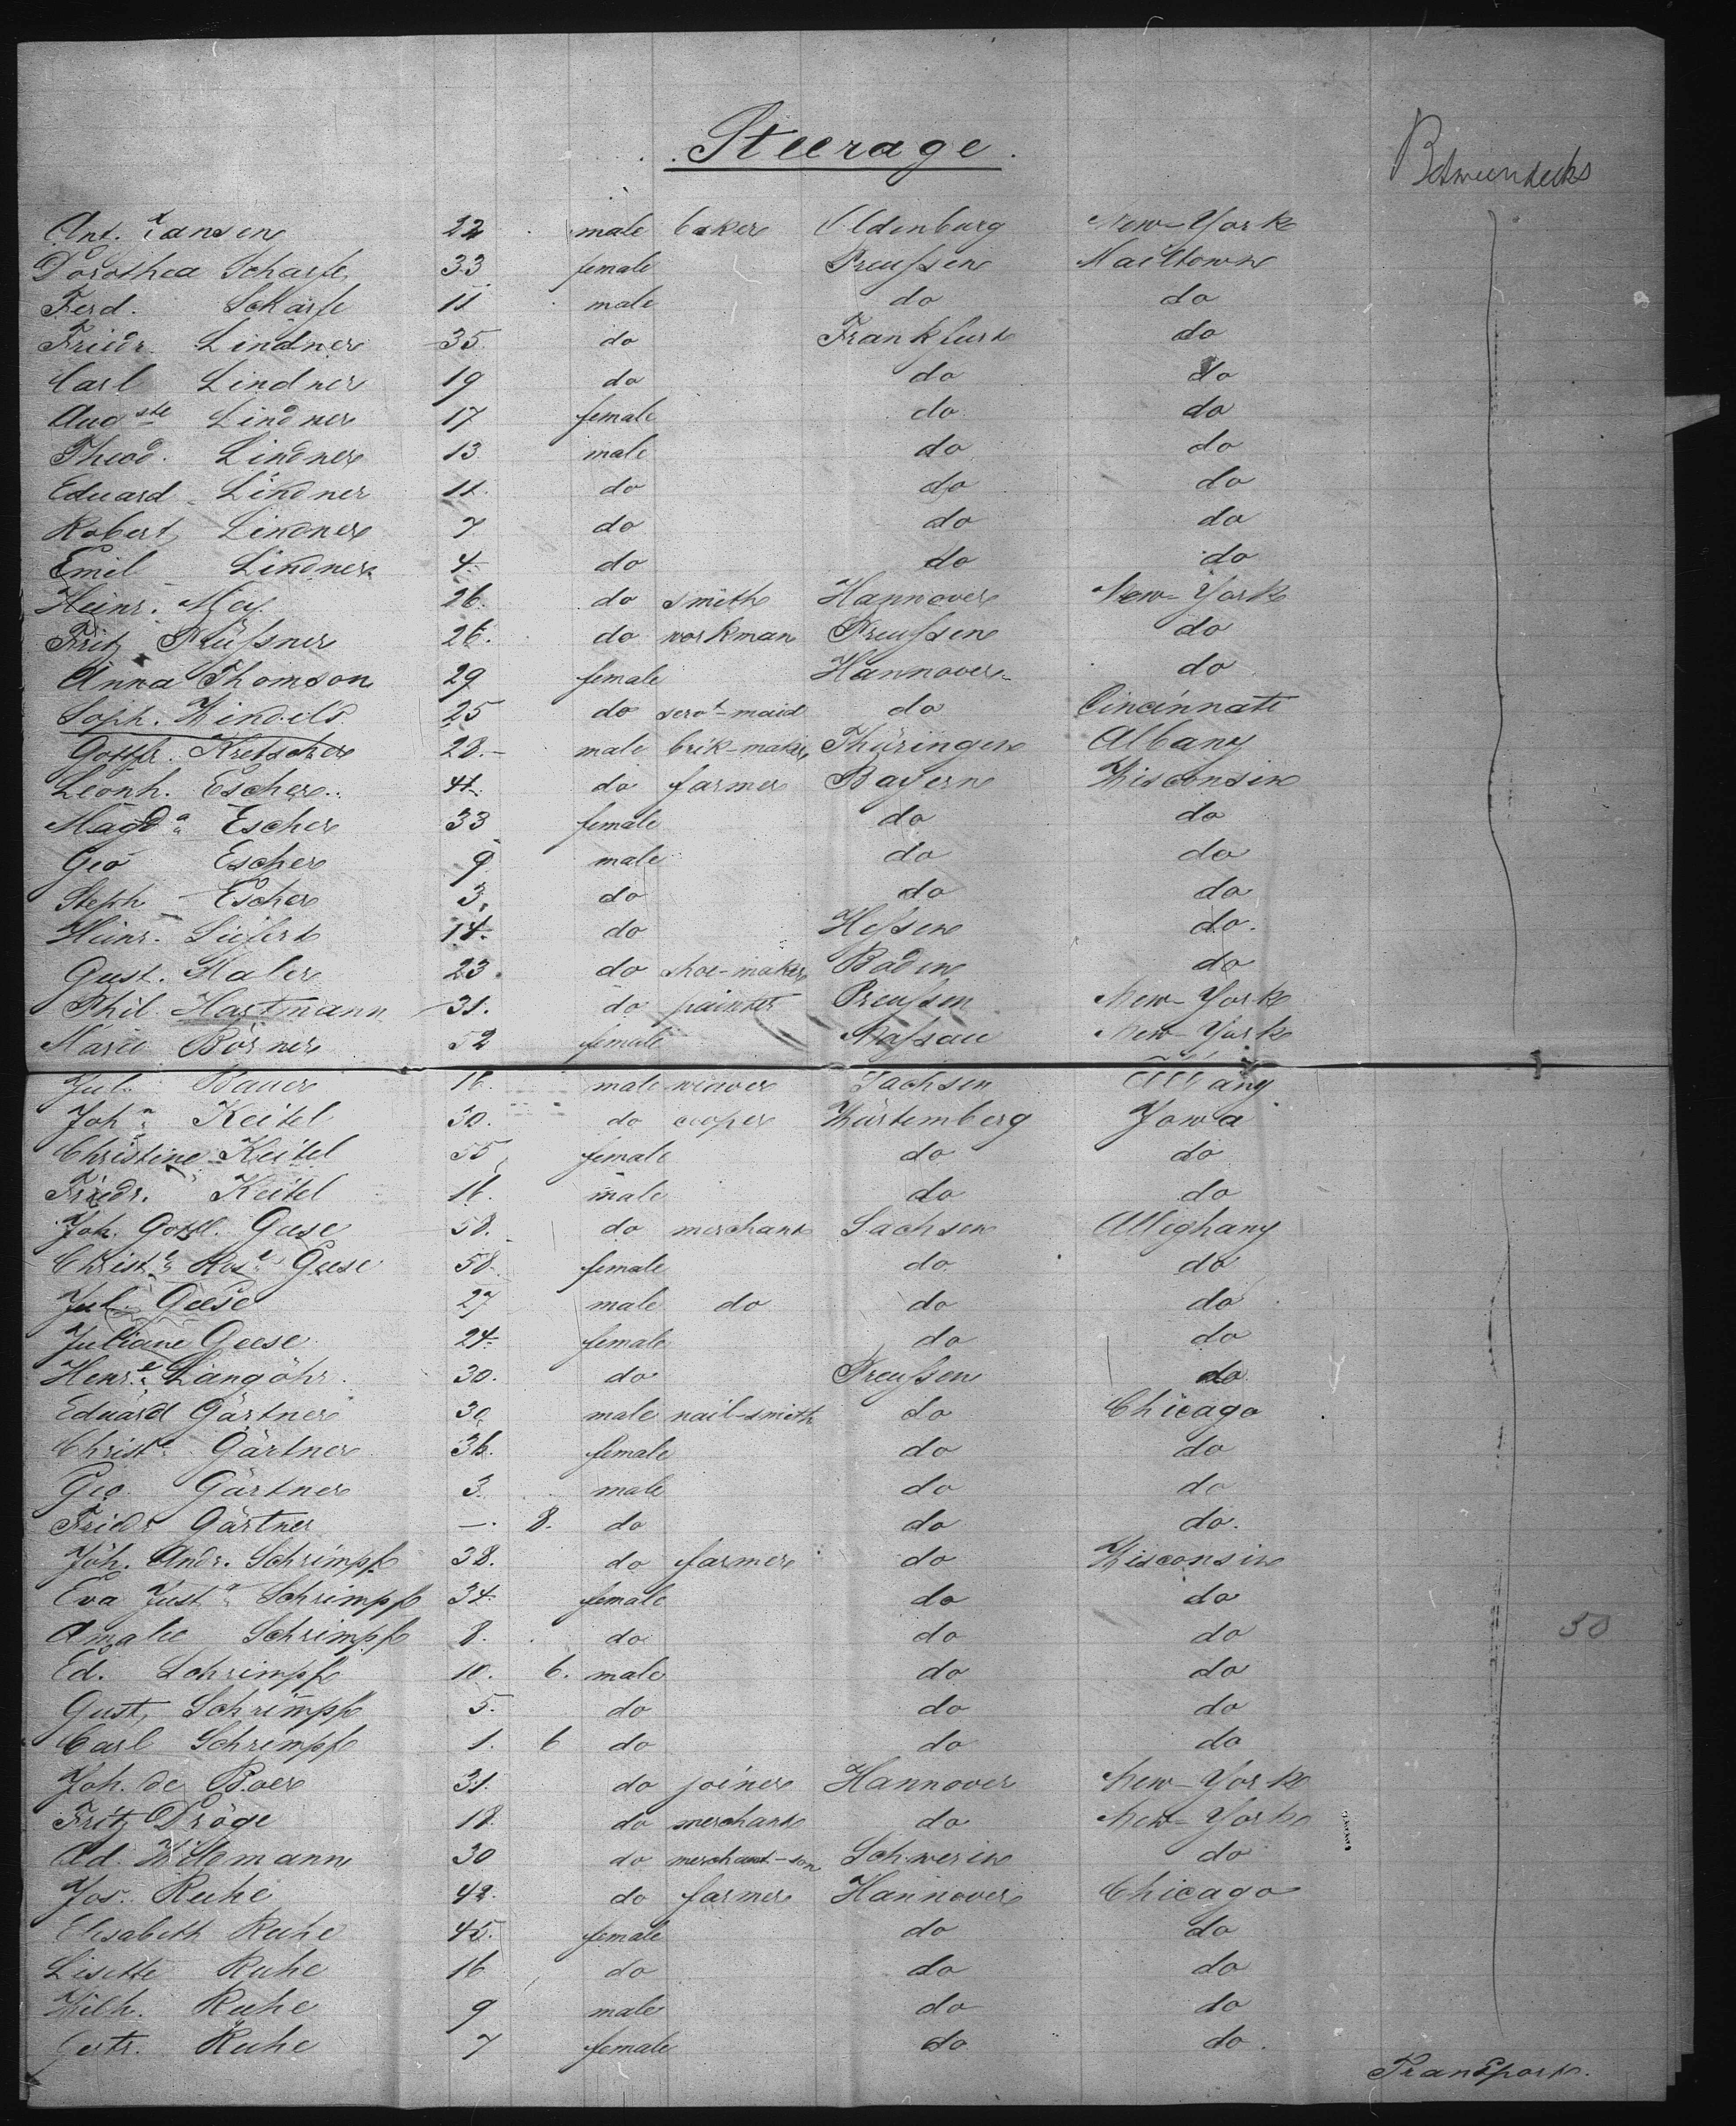 Steerage
Betweendecks
Ant. Jansen 22 male baker Oldenburg New-York
Dorothea Scharfe 33 female Preußen Mailtown
Ferd. Scharfe 11 male do do
Friedr. Lindner 35 do Frankfurt do
Carl Lindner 19 do do do
Augste Lindner 17 female do do
Theod. Lindner 13 male do do
Eduard Lindner 11. do do do
Robert Lindner 7 do do do
Emil Lindner 4. do do do
Heinr. Mey 26. do smith Hannover New-York
Fritz 26. do workman Preußen do
Anna Thomson 29 female Hannover do
Soph. Windels 25 do servt-maid do Cincinnati
Gottfr. Kretscher 28. male brik-maker Thüringen Albany
Leonh. Escher 41. do farmer Bayern Wisconsin
Magda Escher 33 female do do
Geo Escher 9 male do do
Steph Escher 3. do do do
Heinr. Siefert 14. do Heßen do.
Gust. Maler 23. do shoe-maker Baden do
Phil. Hartmann 31. do painter Preußen New-York
Marie Börner 52 female Naßau New-York
Jul. Bauer 18. male weaver Sachsen Albany
Joha Keitel 30. do cooper Würtemberg Jowa
Christine Keitel 55 female do do
Friedr. Keitel 16. male do do
Joh. Gottl. Geese 58. do merchant Sachsen Alleghany
Christa Rosa Geese 58. female do do
Jul. Geese 27 male do do do
Juliane Geese 24. female do do
Henre Langöhr 30. do Preußen do
Eduard Gärtner 30 male nail-smith do Chicago
Christe Gärtner 36. female do do
Geo. Gärtner 3. male do do
Friedr Gärtner —. 8. do do do.
Joh. Andr. Schrimpf 38. do farmer do Wisconsin
Eva Justa Schrimpf 34. female do do
Amalie Schrimpf 8. do do do
50
Ed. Schrimpf 10. 6. male do do
Gust. Schrimpf 5. do do do
Carl Schrimpf 1. 6 do do do
Joh. de Boer 31. do joiner Hannover New-York
Fritz Dröge 18. do merchant do New-York
Ad. Willemann 30 do merchant-son Schwerin do
Jos. Ruhe 48. do farmer Hannover Chicago
Elisabeth Ruhe 45. female do do
Lisette Ruhe 16 do do do
Wilh. Ruhe 9 male do do
Gertr. Ruhe 7 female do do.
Transport.